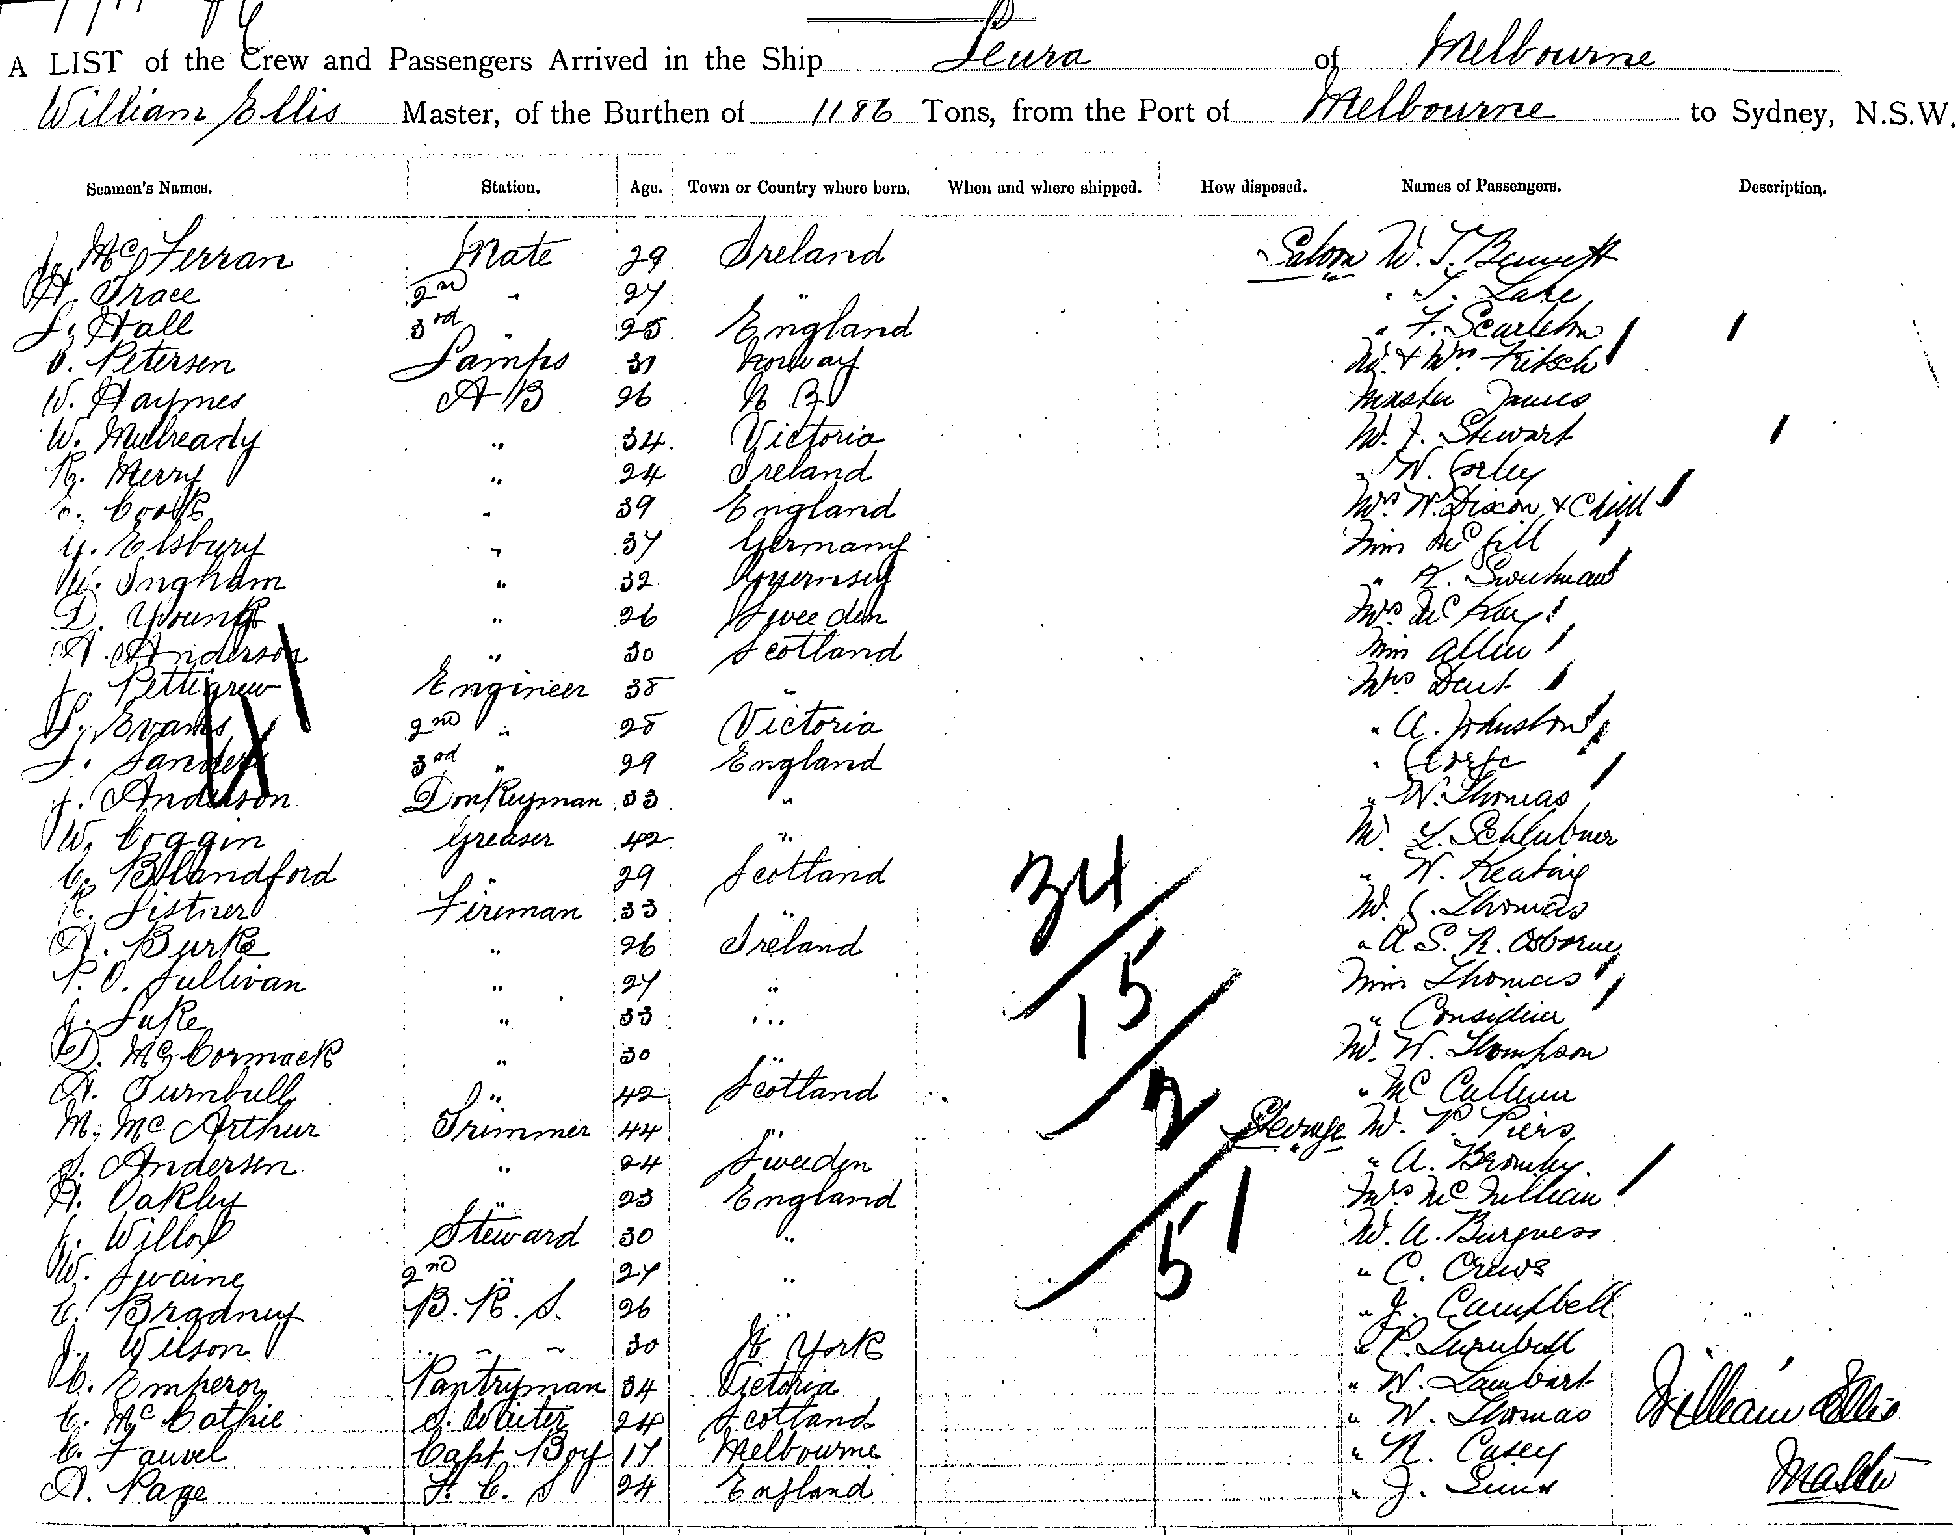 A LIST of the Crew and Passengers Arrived in the Ship Leura of Melbourne
William Ellis Master, of the Burthen of 1186 Tons, from the Port of Melbourne to Sydney, N.S.W.
Seamen's Names. Station. Age. Town or Country where born. When and where shipped. How disposed. Names of Passengers. Description.
McFerran Mate 29 Ireland Saloon W. T. Bennett
H. Trace 2nd " 27 " " T. Lake
Hall 3rd " 25 England " F. Scarleton
Petersen Lamps 31 Norway Mr & Mrs Fritsch
W. Haymes A B 26 N. Z. Master James
W. Mulready " 34 Victoria Mr. J. Stewart
R. Merry " 24 Ireland " W. Corley
Cook " 39 England Mrs W. Dixon & Child
G. Elsbury " 37 Germany Miss McGill
W. Ingham " 32 Guernsey "
D. Young " 26 Sweeden Mrs McKay
A. Anderson " 30 Scotland Miss Allen
J. Pettigrew Engineer 38 " Mrs Dent
Evans 2nd " 28 Victoria " A. Johnston
Sanders 3rd " 29 England "
J. Anderson Donkeyman 33 " " W. Thomas
W. Coggin Greaser 42 " Mr. L.
C. Blandford " 29 Scotland " W. Keating
Listner Fireman 33 " Mr. C. Thomas
A. Burke " 26 Ireland " A S. R. Osborne
P. O. Sullivan " 27 " Miss Thomas
J. Luke " 33 " " Considine
D. McCormack " 30 " Mr. W. Thompson
A. Turnbull " 42 Scotland " McCullum
M. McArthur Trimmer 44 " Steerage Mr. P. Piers
Andersen " 24 Sweeden " A. Bromley
A. Oakley " 23 England Mrs
J. Willox Steward 30 " Mr. A. Burgess
W. Swaine 2nd " 27 " " C. Crews
C. Bradney B. R. S. 26 " " J. Campbell
J. Wilson " " " 30 N York " P. Turnbull
C. Emperor Pantryman 34 Victoria " W. Lambart
C. McCathie S. Waiter 24 Scotland " W. Thomas
C. Fauvel Capt Boy 17 Melbourne " R. Casey
A. Page F. C. S 24 England " J.
34
15
2
51
William Ellis
Master